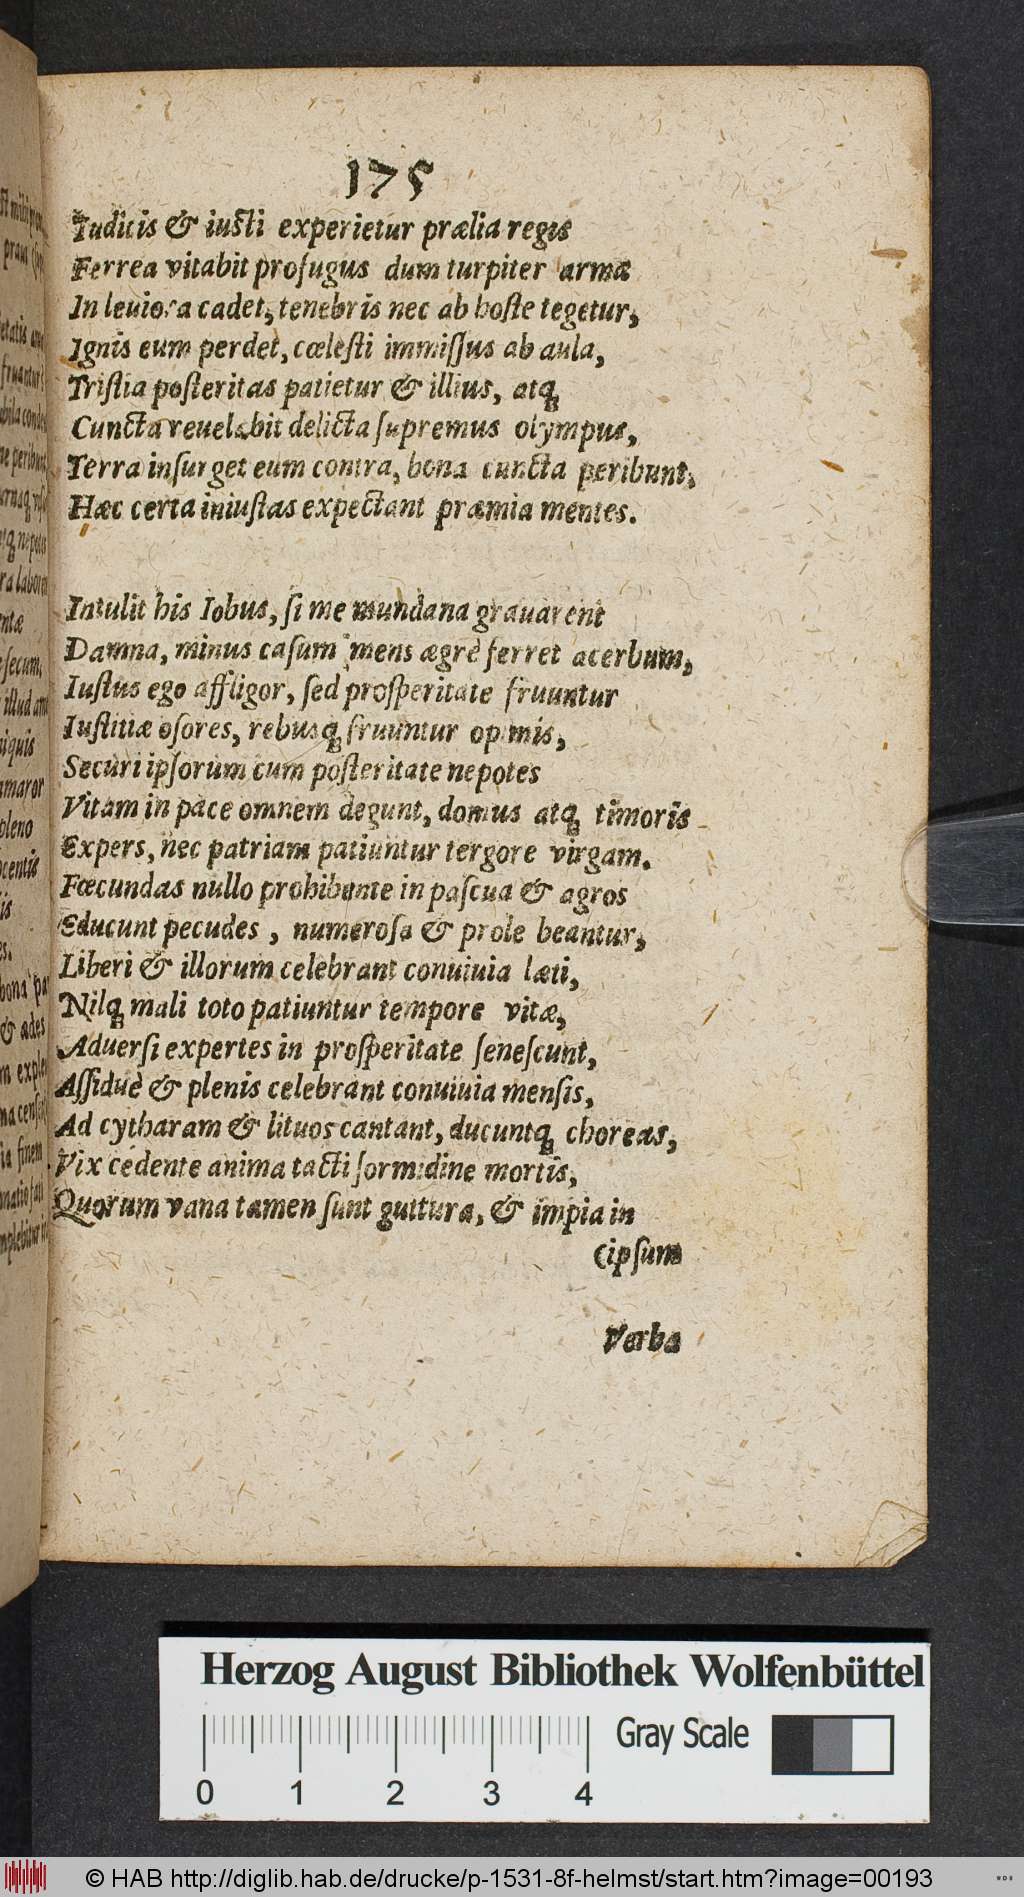 175
Iudicis & iusti experietur prælia regis
Ferrea vitabit profugus dum turpiter arma
In leuiora cadet, tenebris nec ab hoste tegetur,
Ignis eum perdet, cœlesti immissus ab aula,
Tristia posteritas patietur & illius, atq́
Cuncta reuelabit delicta supremus olympus,
Terra insurget eum contra, bona cuncta peribunt,
Hæc certa iniustas expectant præmia mentes.
Intulit his Iobus, si me mundana grauarent
Damna, minus casum mens ægrè ferret acerbum,
Iustus ego affligor, sed prosperitate fruuntur
Iustitiæ osores, rebusq́ fruuntur opimis,
Securi ipsorum cum posteritate nepotes
Vitam in pace omnem degunt, domus atq́ timoris
Expers, nec patriam patiuntur tergore virgam.
Fœcundas nullo prohibente in pascua & agros
Educunt pecudes, numerosa & prole beantur,
Liberi & illorum celebrant conuiuia læti,
Nilq́ mali toto patiuntur tempore vitæ,
Aduersi expertes in prosperitate senescunt,
Assiduè & plenis celebrant conuiuia mensis,
Ad cytharam & lituos cantant, ducuntq́ choreas,
Vix cedente anima tacti formidine mortis,
Quorum vana tamen sunt guttura, & impia in
(ipsum
Verba
Herzog August Bibliothek Wolfenbüttel
Gray Scale
0 1 2 3 4
© HAB http://diglib.hab.de/drucke/p-1531-8f-helmst/start.htm?image=00193